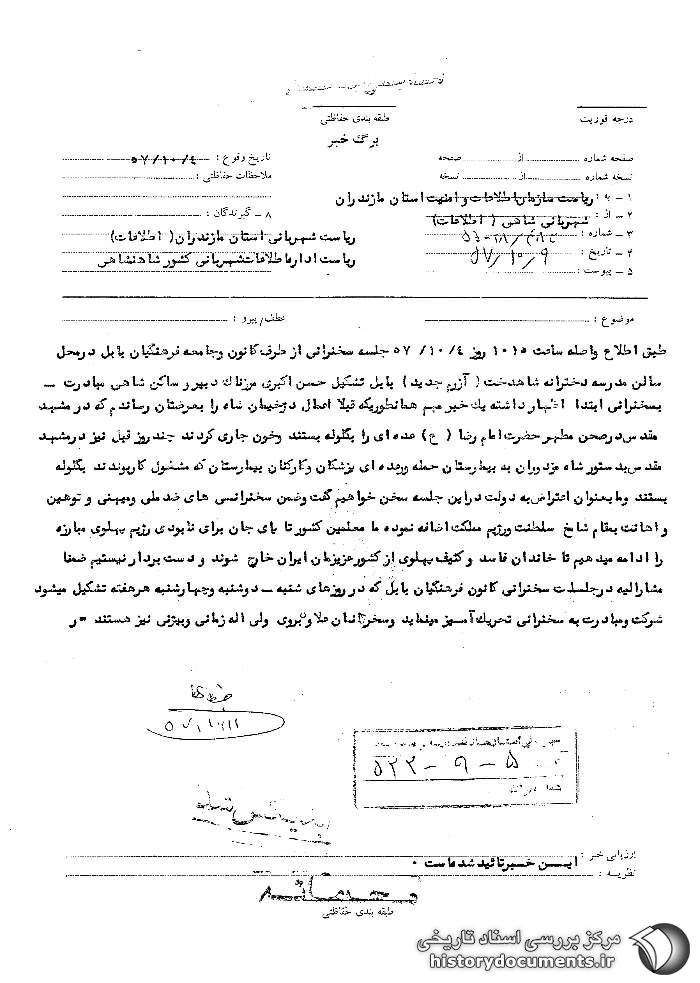 درجه فوریت
طبقه بندی حفاظتی
برگ خبر
صفحه شماره از صفحه
نسخه شماره از نسخه
۱ - به : ریاست سازمان اطلاعات و امنیت استان مازندران
۲ - از : شهربانی شاهی ( اطلاعات )
۳ - شماره :
۴ - تاریخ : ۵۷/۱۰/۹
۵ - پیوست :
تاریخ وقوع : ۵۷/۱۰/۴
ملاحظات حفاظتی :
۸ - گیرندگان :
ریاست شهربانی استان مازندران ( اطلاعات )
ریاست اداره اطلاعات شهربانی کشور شاهنشاهی
موضوع : عطف/پیرو :
طبق اطلاع واصله ساعت ۱۰۱۵ روز ۵۷/۱۰/۴ جلسه سخنرانی از طرف کانون وجامعه فرهنگیان بابل درمحل
سالن مدرسه دخترانه شاهدخت ( آزرم جدید ) بابل تشکیل حسن اکبری مرزناک دبیر و ساکن شاهی مبادرت -
بسخنرانی ابتدا اظهار داشته یک خبر مهم همانطوریکه قبلا اعمال دژخیمان شاه را بعرضتان رساندم که در مشهد
مقدس درصحن مطهر حضرت امام رضا ( ع ) عده ای را بگلوله بستند وخون جاری کردند چند روز قبل نیز درمشهد
مقدس بدستور شاه مزدوران به بیمارستان حمله وعده ای پزشکان وکارکنان بیمارستان که مشغول کاربودند بگلوله
بستند وما بعنوان اعتراض به دولت دراین جلسه سخن خواهیم گفت وضمن سخنرانی های ضد ملی ومیهنی و توهین
و اهانت بمقام شامخ سلطنت ورژیم مملکت اضافه نموده ما معلمین کشور تا پای جان برای نابودی رژیم پهلوی مبارزه
را ادامه میدهیم تا خاندان فاسد و کثیف پهلوی از کشور عزیزمان ایران خارج شوند و دست بردار نیستیم ضمنا
مشارالیه درجلسات سخنرانی کانون فرهنگیان بابل که در روزهای شنبه - دوشنبه وچهارشنبه هرهفته تشکیل میشود
شرکت ومبادرت به سخنرانی تحریک آمیز مینماید وسخرانان ملا وبروی ولی اله زمانی وبیژنی نیز هستند - ر
۵ - ۹ - ۵۲۲
ارزیابی خبر : این خبر تائید شده است .
نظریه :
محرمانه
طبقه بندی حفاظتی
مرکز بررسی اسناد تاریخی
historydocuments.ir